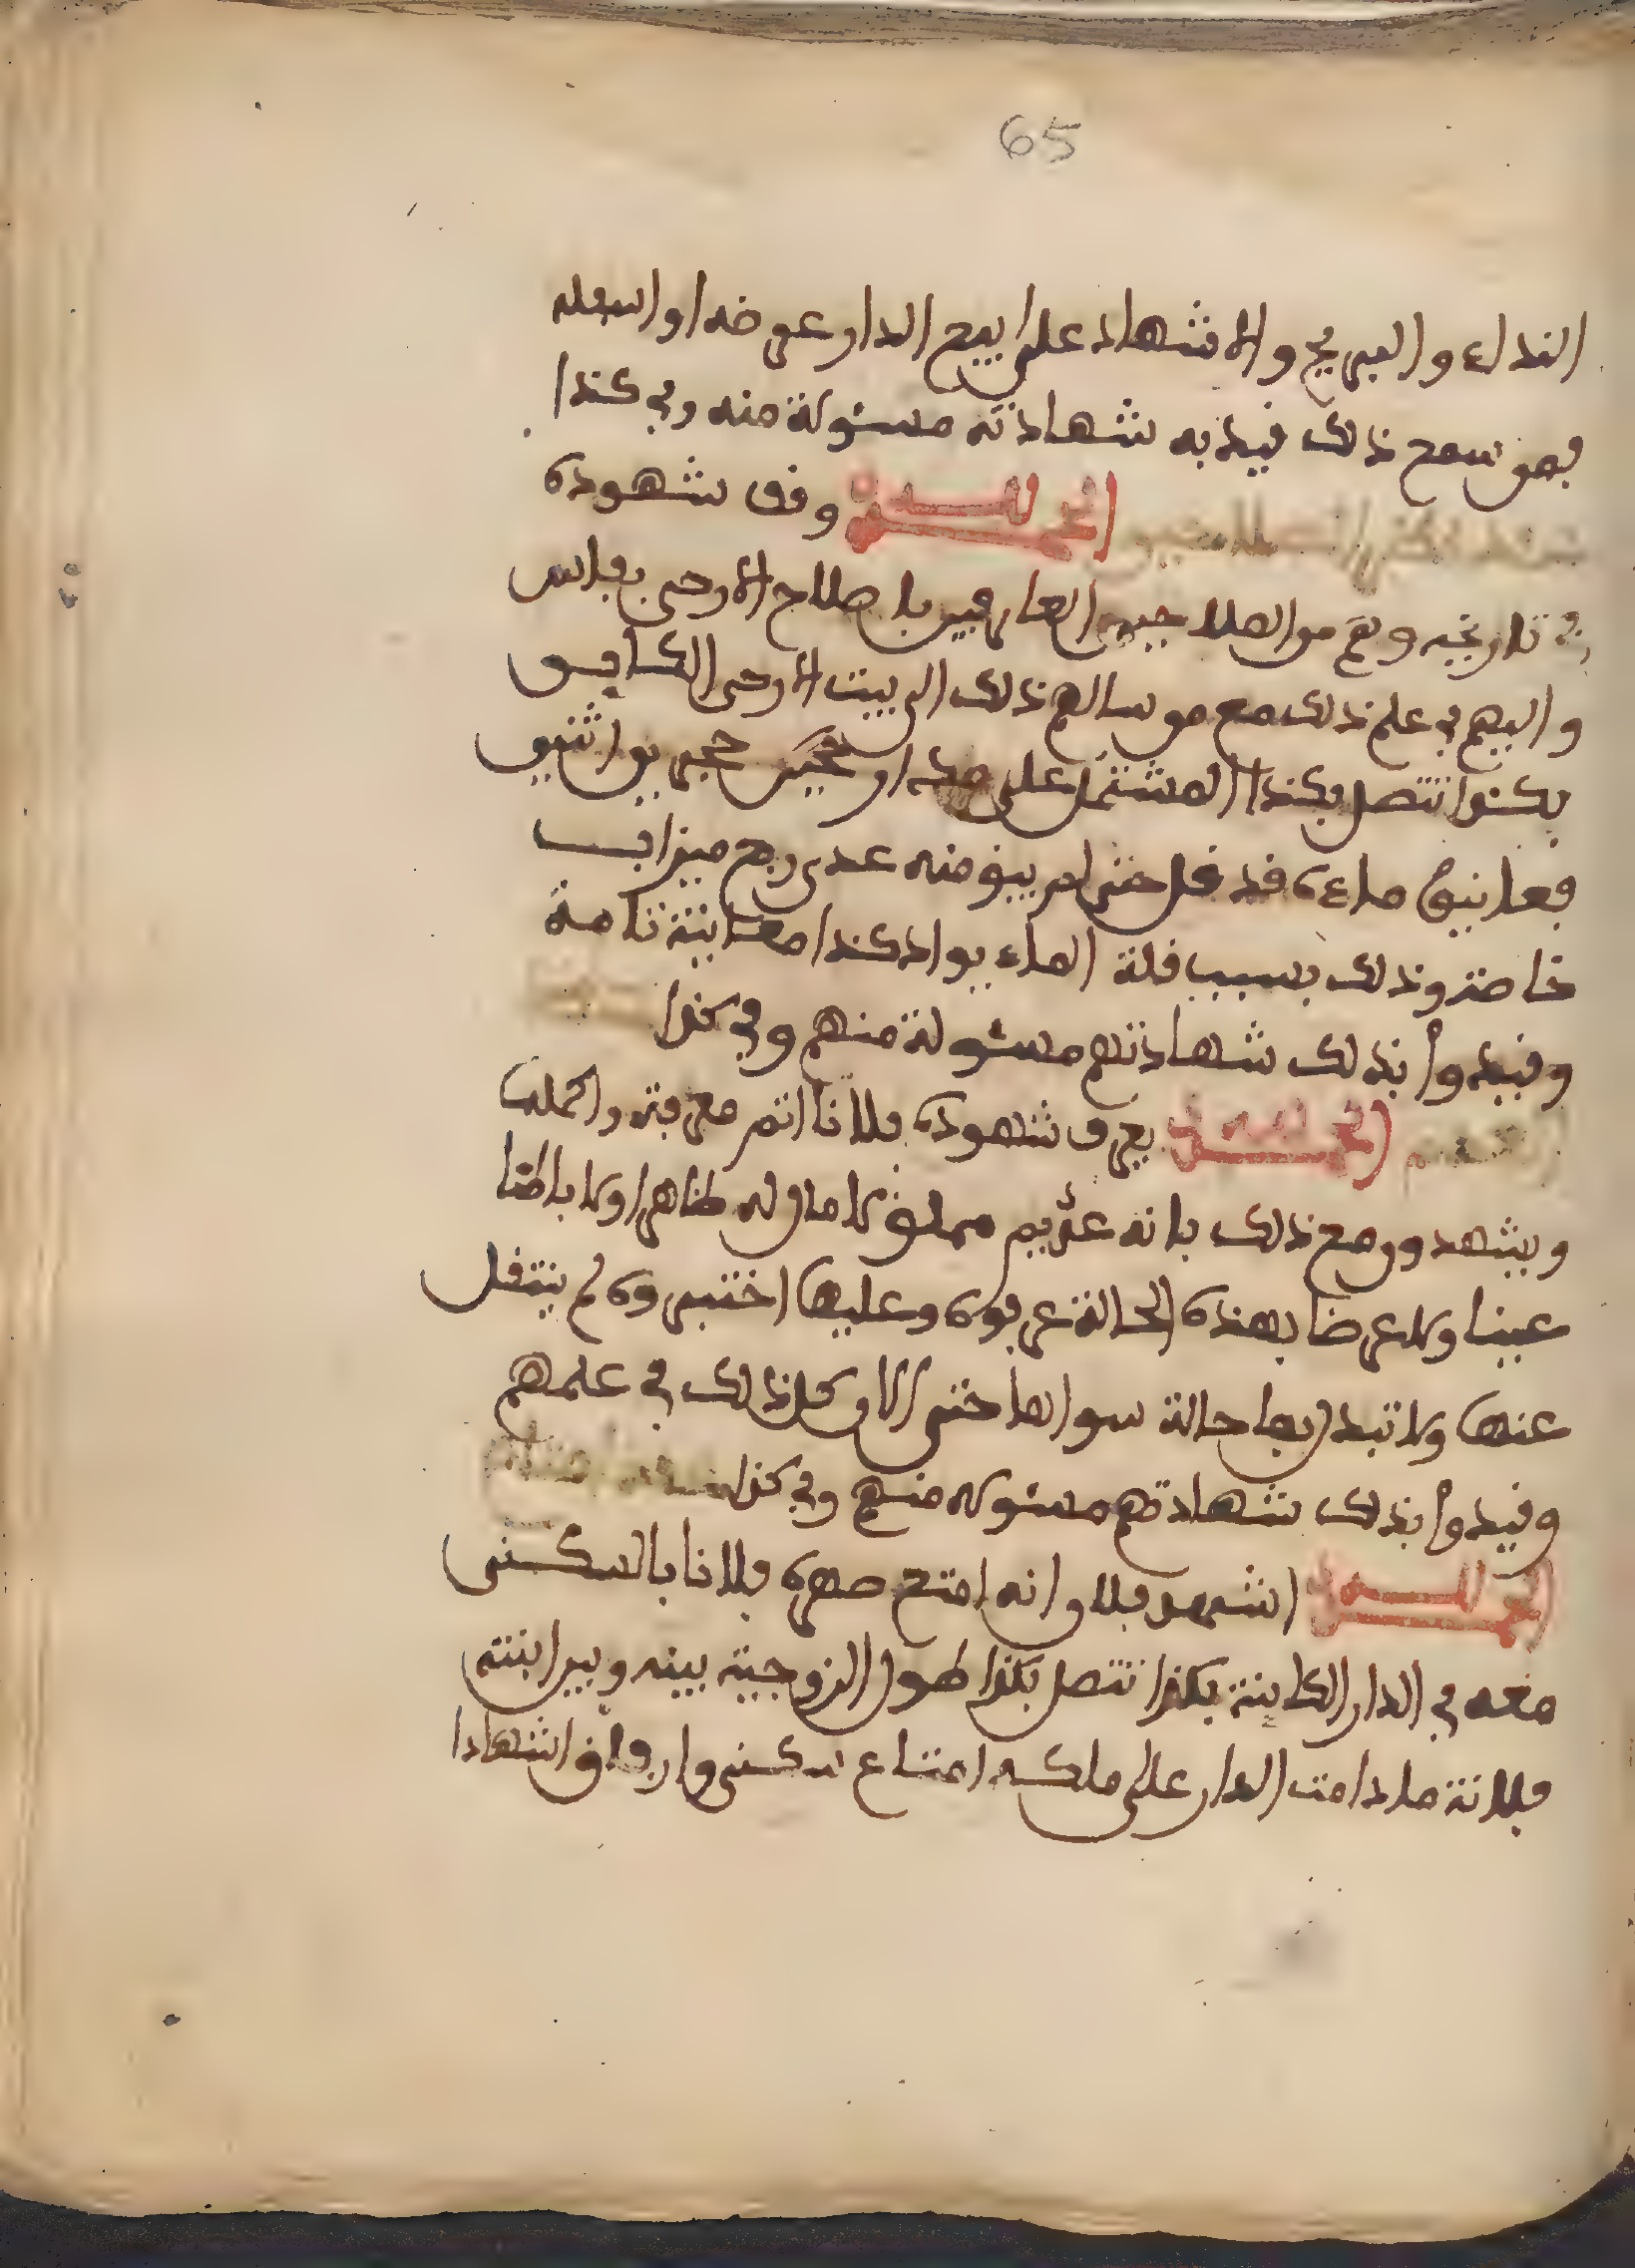 65
النداء والتبريح والاشهاد على بيع الدار عرضها واسعله
فمن سمع ذلك قيد به شهادته مسئولة منه وفي كذا
الحمد لله وقف شهوده
في تاريخه وهم من الطلاحيين العارفين باصلاح الارحى بفاس
واليهم في علم ذلك مع من سالهم ذلك الى بيت الارحى الكاين
بكذا تتصل بكذا المشتمل على مدار تحيير حجرين اثنين
فعاينوا ماءه قد قل حتى لم يبق منه عدى ربع ميزاب
خاصة وذلك بسبب قلة الماء بواد كذا معاينة تامة
وقيدوا بذلك شهادتهم مسئولة منهم وفي كذا
الحمد لله يعرف شهوده فلانا اتم معرفة واكملها
ويشهدون مع ذلك بانه عديم مملق لا مال له ظاهرا ولا باطنا
عينا ولا عرضا بهذه الحالة عرفوه وعليها اختبروه لم ينتقل
عنها ولا تبدل بها حالة سواها حتى الان كل ذلك في علمهم
وقيدوا بذلك شهادتهم مسئولة منهم وفي كذا
الحمد لله اشهد فلان انه امتع صهره فلانا بالسكنى
معه في الدار الكاينة بكذا تتصل بكذا طول الزوجية بينه وبين ابنته
فلانة ما دامت الدار على ملكه امتاع سكنى وارفاق اشهادا